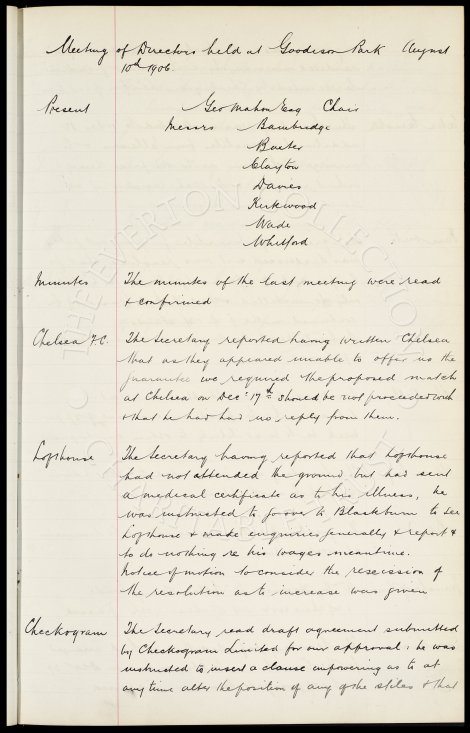 Meeting of Directors held at Goodison Park August
10th 1906.
Present Geo Mahon Esq Chair
Messrs Bainbridge
Baxter
Clayton
Davies
Kirkwood
Wade
Whitford
Minutes The minutes of the last meeting were read
& confirmed
Chelsea F.C. The Secretary reported having written Chelsea
that as they appeared unable to offer us the
guarantee we required the proposed match
at Chelsea on Dec: 17th should be not proceeded with
& that he had had no reply from them.
Lofthouse The Secretary having reported that Lofthouse
had not attended the ground but had sent
a medical certificate as to his illness, he
was instructed to go over to Blackburn to see
Lofthouse & make enquiries generally & report &
to do nothing re his wages meantime.
Notice of motion to consider the rescission of
the resolution as to increase was given
Checkogram The Secretary read draft agreement submitted
by Checkogram Limited for our approval: he was
instructed to insert a clause empowering us to at
any time alter the position of any of the stiles & that
THE EVERTON COLLECTION